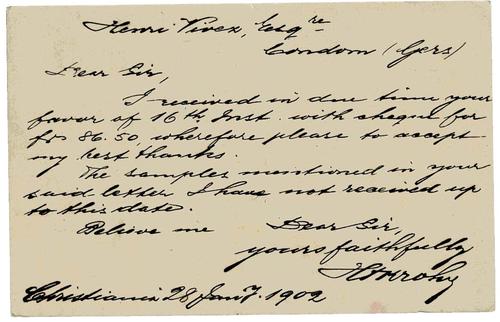 Henri Vivex, Esqre
Condom (Gers)
Dear Sir,
I received in due time your
favor of 16th Inst. with cheque for
frs 86.50, wherefore please to accept
my best thanks.
The samples mentioned in your
said letter I have not received up
to this date.
Believe me Dear Sir,
yours faithfully
Christiania 28 Jany. 1902